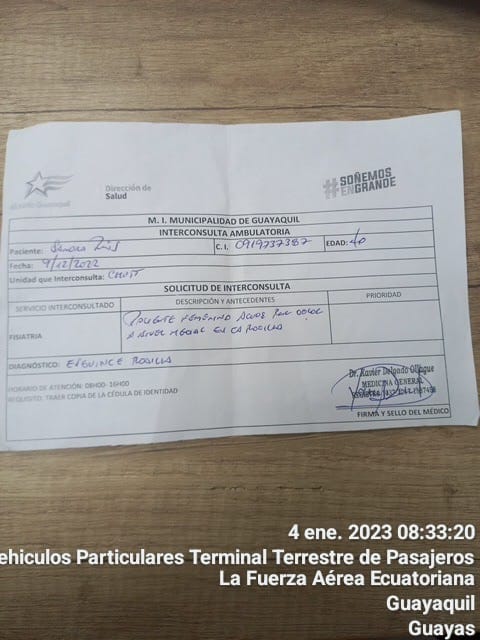 Alcaldía Guayaquil
Dirección de
Salud
#SOÑEMOS
ENGRANDE
M. I. MUNICIPALIDAD DE GUAYAQUIL
INTERCONSULTA AMBULATORIA
Paciente: Sandra C. I. 0919737387 EDAD: 40
Fecha: 9/12/2022
Unidad que Interconsulta:
SOLICITUD DE INTERCONSULTA
SERVICIO INTERCONSULTADO DESCRIPCIÓN Y ANTECEDENTES PRIORIDAD
FISIATRIA
PACIENTE FEMENINO ACUDE POR DOLOR
A NIVEL MEDIAL EN LA RODILLA
DIAGNÓSTICO: ESGUINCE RODILLA
HORARIO DE ATENCIÓN: 08H00- 16H00
REQUISITO: TRAER COPIA DE LA CÉDULA DE IDENTIDAD
Dr. Xavier Delgado
MEDICINA GENERAL
FIRMA Y SELLO DEL MÉDICO
4 ene. 2023 08:33:20
ehiculos Particulares Terminal Terrestre de Pasajeros
La Fuerza Aérea Ecuatoriana
Guayaquil
Guayas